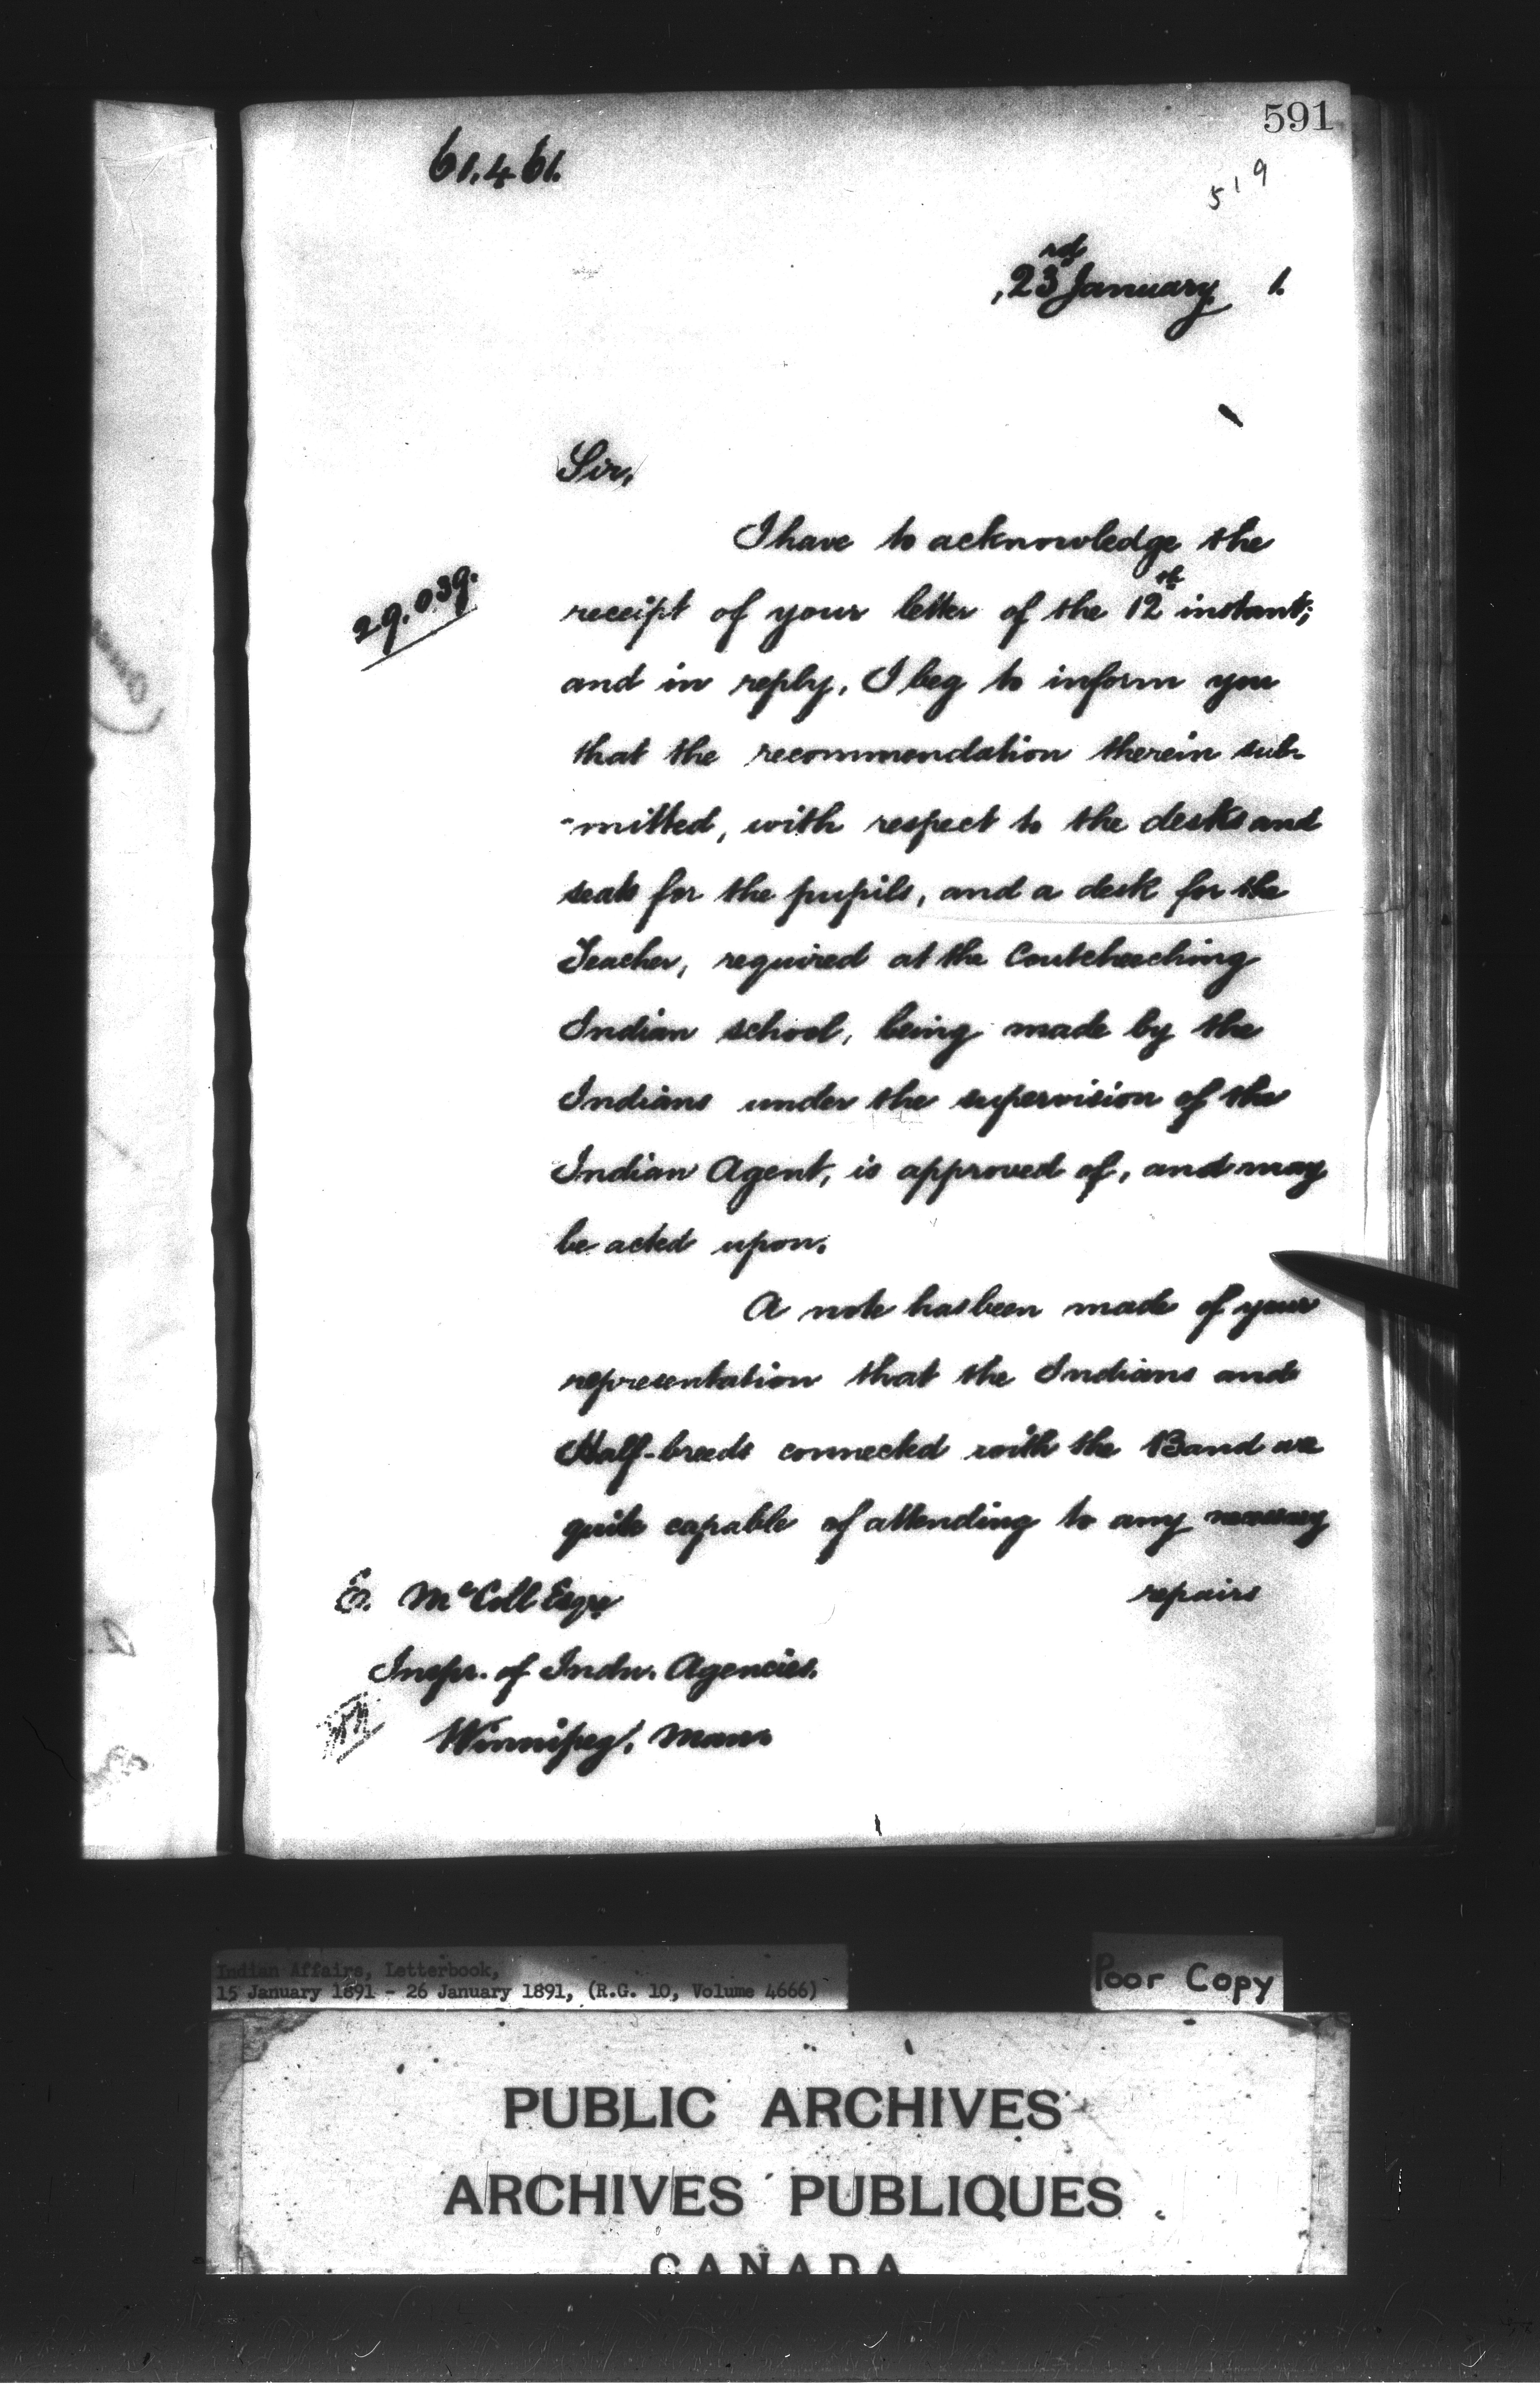 591
61.461.
519
23rd January 1.
Sir,
I have to acknowledge the
29.039.
receipt of your letter of the 12th instant;
and in reply, I beg to inform you
that the recommendation therein sub-
-mitted, with respect to the desks and
seats for the pupils, and a desk for the
Teacher, required at the Coutcheeching
Indian school, being made by the
Indians under the supervision of the
Indian Agent, is approved of, and may
be acted upon.
A note has been made of your
representation that the Indians and
Half-breeds connected with the Band are
quite capable of attending to any necessary
repairs
E. McColl Esqre
Inspr. of Indn. Agencies.
Winnipeg, Man
Indian Affairs, Letterbook,
15 January 1891 - 26 January 1891, (R.G. 10, Volume 4666)
Poor Copy
PUBLIC ARCHIVES
ARCHIVES PUBLIQUES
CANADA